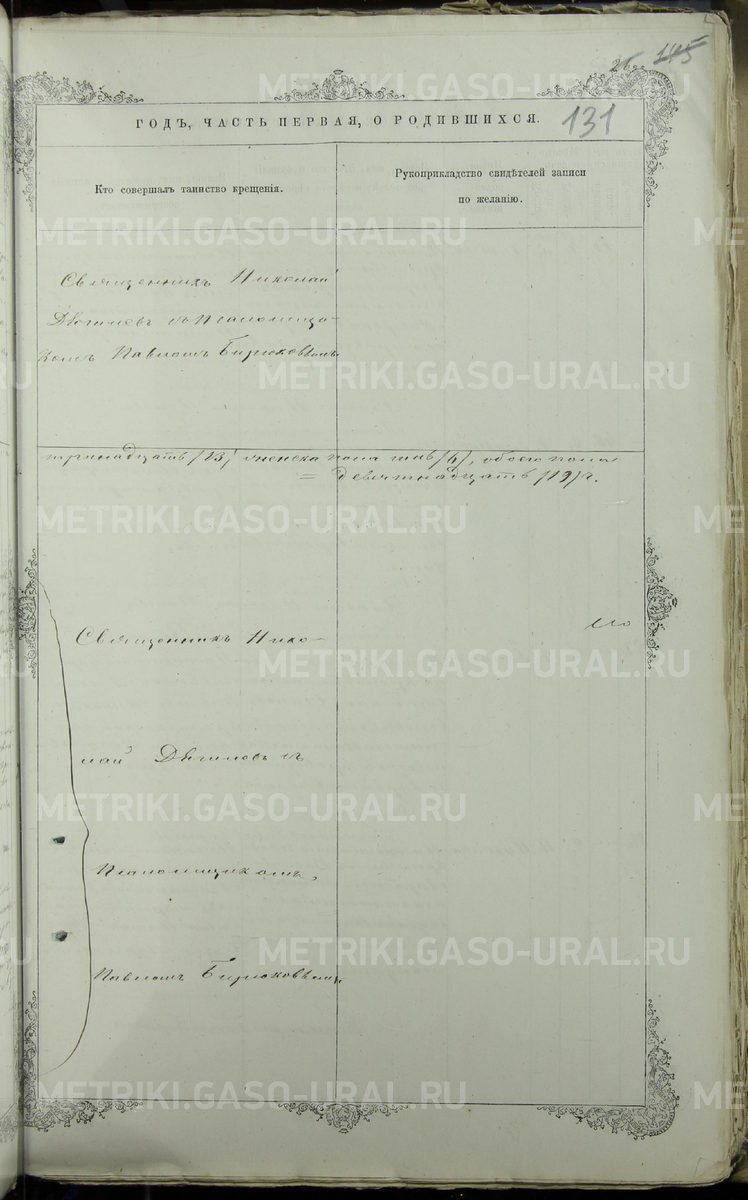 131
ГОДЪ, ЧАСТЬ ПЕРВАЯ, О РОДИВШИХСЯ.
Кто совершалъ таинство крещенія.
Рукоприкладство свидѣтелей записи
по желанію.
Священникъ Николай
съ Псаломщи-
комъ Павломъ Бирюковымъ
тринадцать /13/ женска пола /6/, обоего пола
= девятнадцать /19/
Священникъ Нико-
лай съ
Псаломщикомъ,
Павломъ Бирюковымъ
METRIKI.GASO-URAL.RU